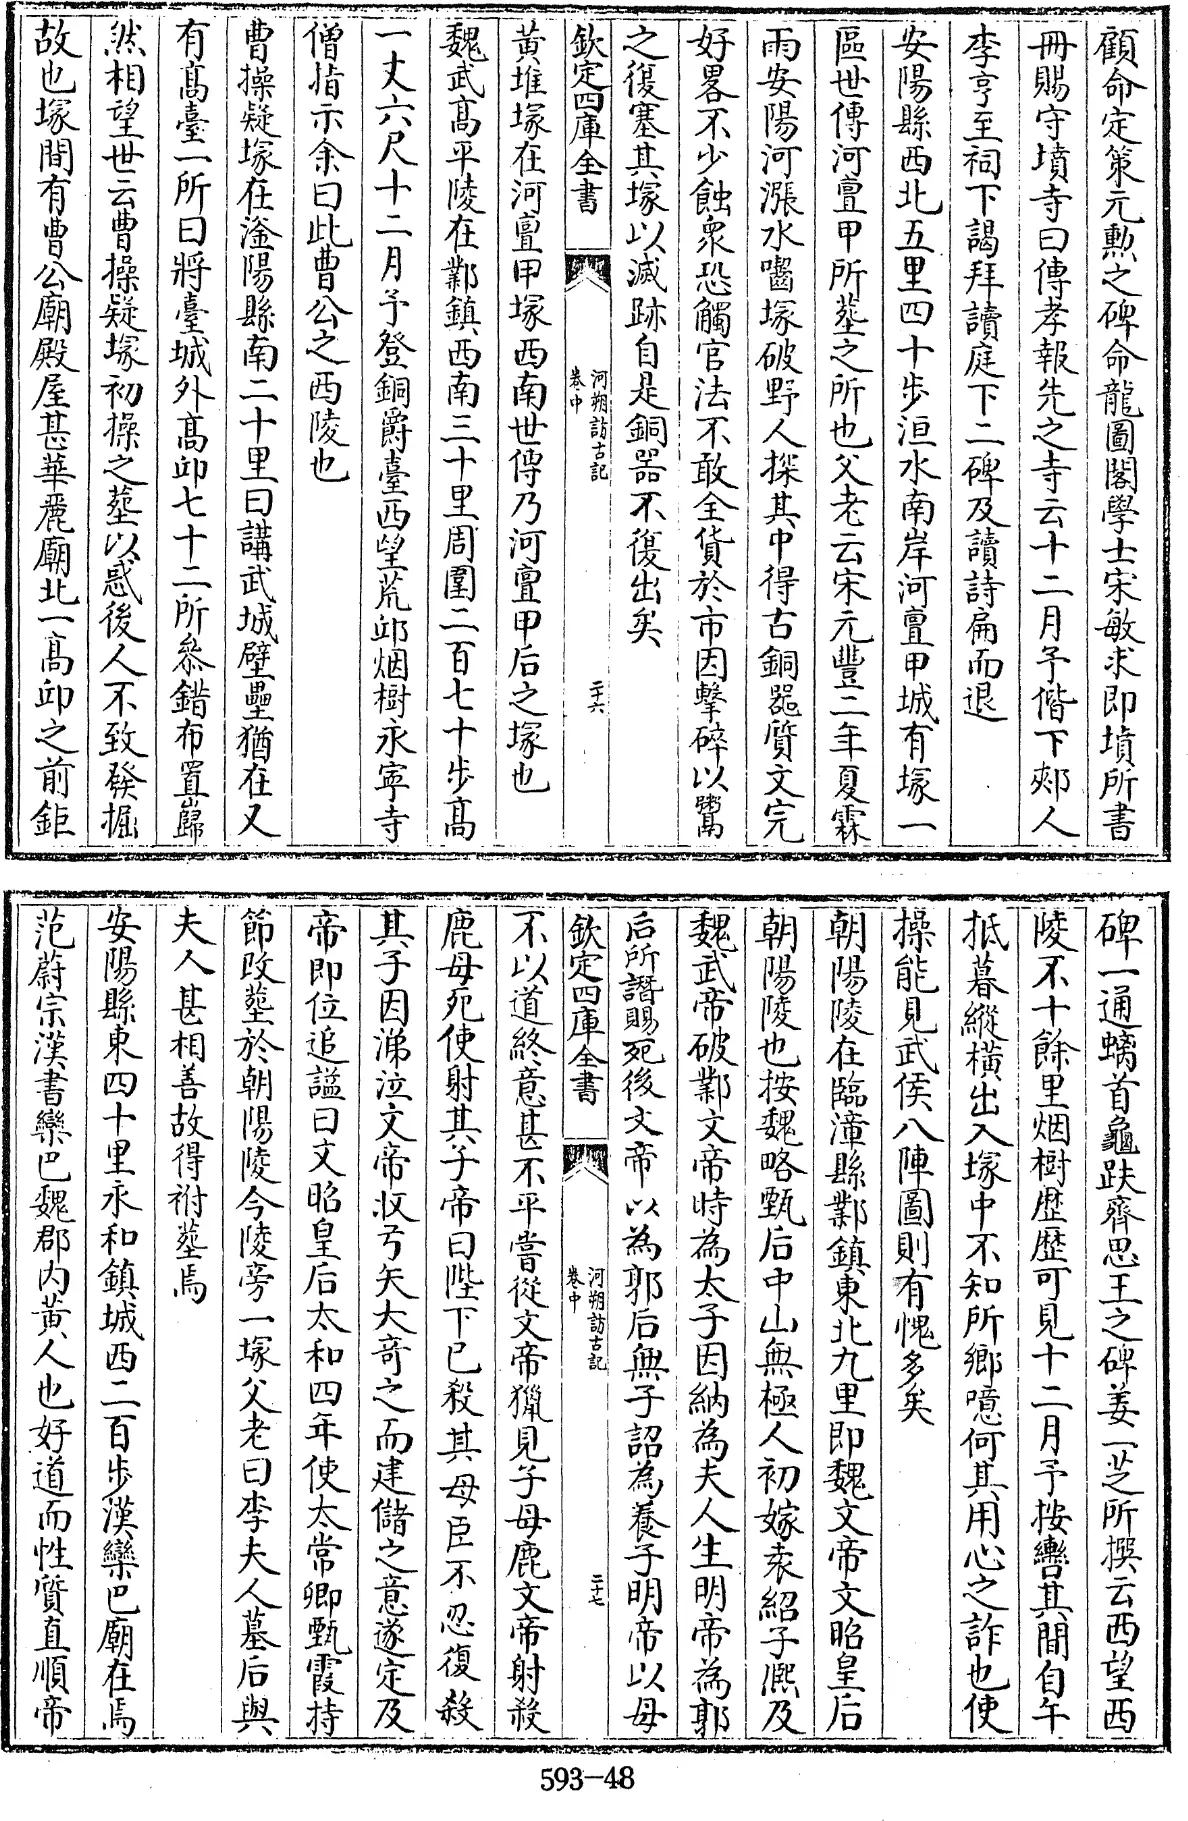 顧命定策元勲之碑命龍圖閣學士宋敏求即墳所書
冊賜守墳寺曰傳孝報先之寺云十二月予偕下郟人
李亨至祠下謁拜讀庭下二碑及讀詩扁而退
安陽縣西北五里四十步洹水南岸河亶甲城有塚一
區世傳河亶甲所塟之所也父老云宋元豐二年夏霖
雨安陽河漲水囓塚破野人探其中得古銅器質文完
好畧不少蝕衆恐觸官法不敢全貨於市因擊碎以鬻
之復塞其塚以滅跡自是銅器不復出矣
欽定四庫全書
河朔訪古記
卷中
二十六
黄堆塚在河亶甲塚西南世傳乃河亶甲后之塚也
魏武髙平陵在鄴鎮西南三十里周圍二百七十步髙
一丈六尺十二月予登銅爵臺西望荒邱烟樹永寧寺
僧指示余曰此曹公之西陵也
曹操疑塚在滏陽縣南二十里曰講武城壁壘猶在又
有髙臺一所曰將臺城外髙邱七十二所叅錯布置巋
然相望世云曹操疑塚初操之塟以惑後人不致發掘
故也塚間有曹公廟殿屋甚華麗廟北一髙邱之前鉅
碑一通螭首龜趺齊思王之碑姜一芝所撰云西望西
陵不十餘里烟樹歴歴可見十二月予按轡其間自午
抵暮縱横出入塚中不知所鄉噫何其用心之詐也使
操能見武侯八陣圖則有愧多矣
朝陽陵在臨漳縣鄴鎮東北九里即魏文帝文昭皇后
朝陽陵也按魏略甄后中山無極人初嫁袁紹子熈及
魏武帝破鄴文帝時為太子因納為夫人生明帝為郭
后所譖賜死後文帝以為郭后無子詔為養子明帝以母
欽定四庫全書
河朔訪古記
卷中
二十七
不以道終意甚不平嘗從文帝獵見子母鹿文帝射殺
鹿母死使射其子帝曰陛下已殺其母臣不忍復殺
其子因涕泣文帝收弓矢大竒之而建儲之意遂定及
帝即位追謚曰文昭皇后太和四年使太常卿甄霞持
節改塟於朝陽陵今陵旁一塚父老曰李夫人墓后與
夫人甚相善故得祔塟焉
安陽縣東四十里永和鎮城西二百步漢欒巴廟在焉
范蔚宗漢書欒巴魏郡内黄人也好道而性質直順帝
593-48